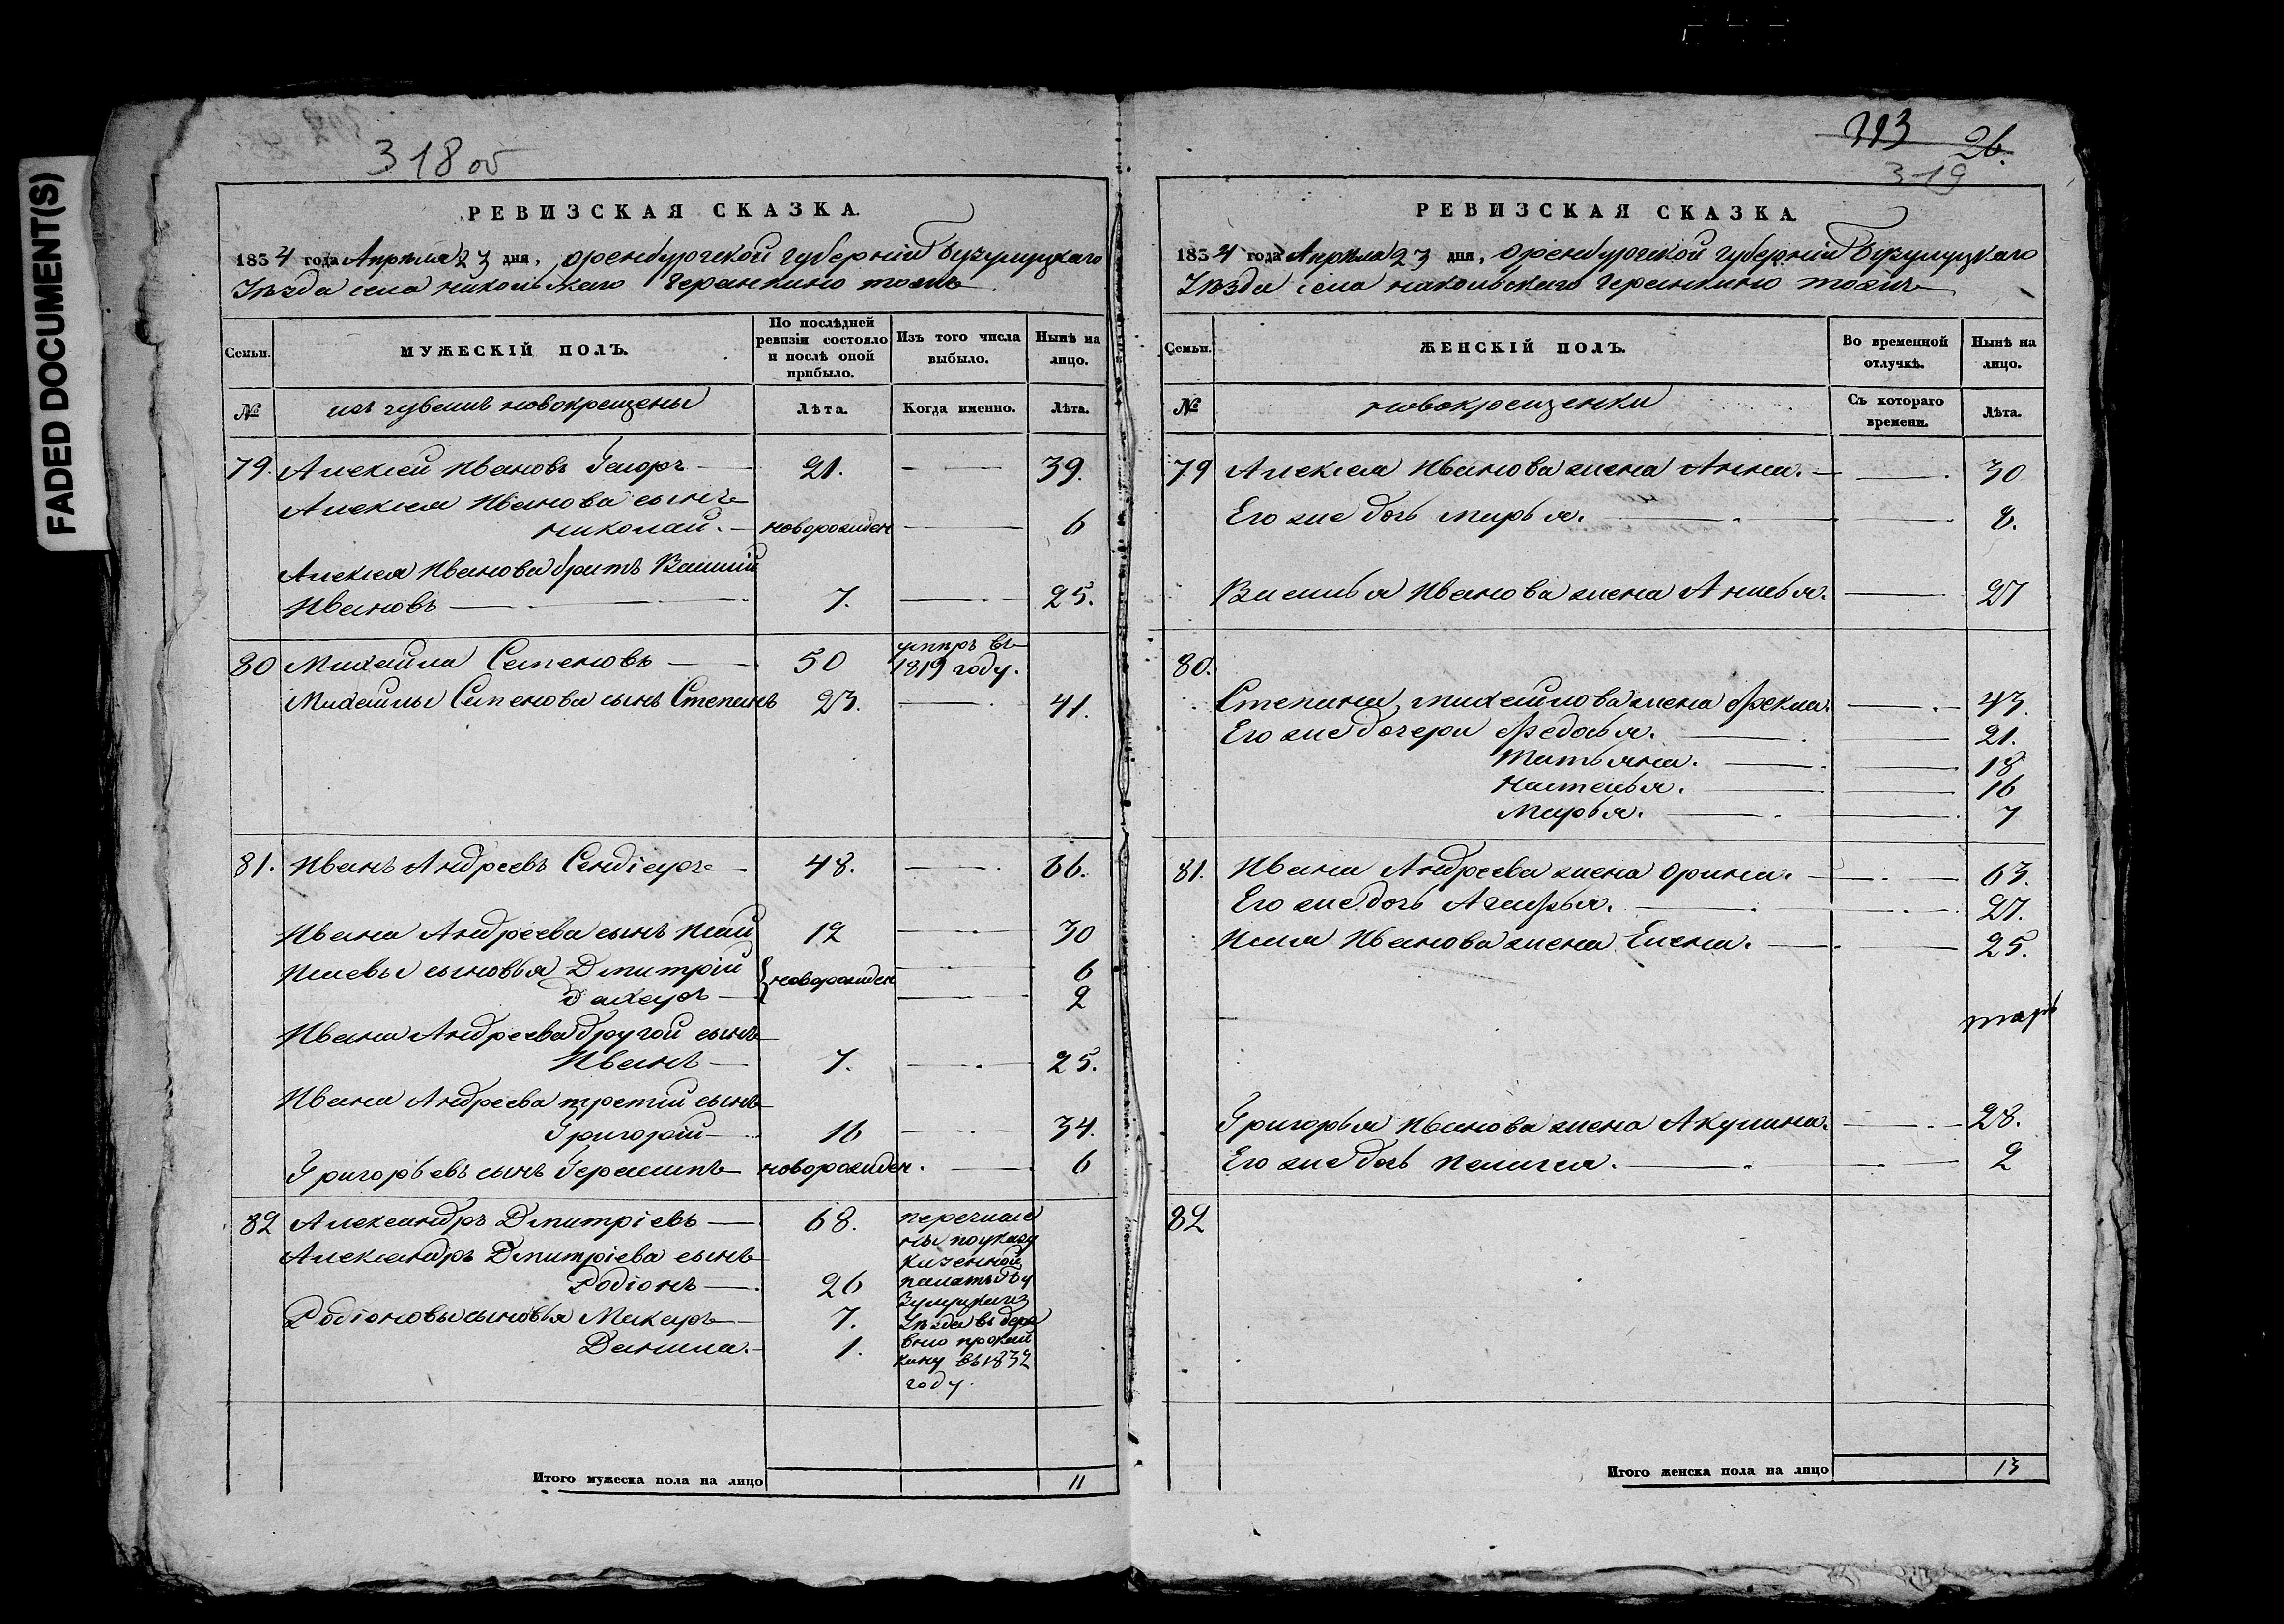 FADED DOCUMENT(S)
318 об
РЕВИЗСКАЯ СКАЗКА.
1834 года Апрѣля 23 дня, оренбургской губернїи Бузулуцкаго
Уѣзда села никольскаго Черанкино тожъ
Семьи.
МУЖЕСКІЙ ПОЛЪ.
По послѣдней ревизіи состояло и послѣ оной прибыло.
Изъ того числа выбыло.
Нынѣ на лицо.
№
изъ чувашъ новокрещены
Лѣта.
Когда именно.
Лѣта.
79. Алексѣй Ивановъ 21. 39.
Алексѣя Иванова сынъ
николай. новорожден 6
Алексѣя Иванова братъ Василий
Ивановъ 7. 25.
80 Михайла Семеновъ 50 умръ въ 1819 году.
Михайлы Семенова сынъ Степанъ 23. 41.
81. Иванъ Андреевъ 48. 66.
Ивана Андреева сынъ Исай 12 30
Исаевы сыновья Дмитрїй 6
Захаръ новорожден 2
Ивана Андреева другой сынъ
Иванъ 7. 25.
Ивана Андреева третий сынъ
Григорїй 16 34.
Григорьевъ сынъ Герасимъ новорожден. 6
82 Александръ Дмитрїевъ 68. перечисле
Александръ Дмитрїева сынъ ны поуказу
казенной
Родїонъ 26 палаты Бу
Родїоновы сыновья Макаръ 7. зулуцкаго
Уѣзда въ дере
Данила. 1. вню
въ 1832
году.
Итого мужеска пола на лицо 11
193 26.
319
РЕВИЗСКАЯ СКАЗКА.
1834 года Апрѣла 23 дня, оренбургской губернїи Бузулуцкаго
Уѣзда села никольскаго Черанкино тожъ
Семьи.
ЖЕНСКІЙ ПОЛЪ.
Во временной отлучкѣ.
Нынѣ на лицо.
№
новокрещенки
Съ котораго времени.
Лѣта.
79 Алексѣя Иванова жена Анна. 30
Его же дочь марья. 8.
Василья Иванова жена Анисья. 27
80.
Степана михайлова жена Фекла. 43.
Его же дочери Федосья. 21.
Татьяна. 18
настасья. 16
Марья. 7
81. Ивана Андреева жена орина. 63.
Его же дочь Агафья. 27.
Исая Иванова жена Елена. 25.
Григорья Иванова жена Акулина. 28.
Его же дочь пелагея. 2
82
Итого женска пола на лицо 13